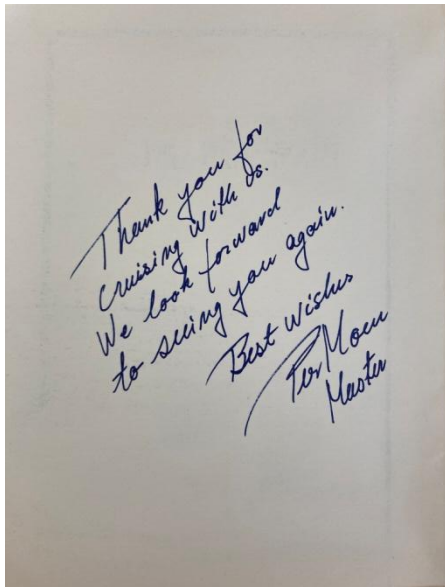 Thank you for
cruising with us.
We look forward
to seeing you again.
Best Wishes
Per
Master